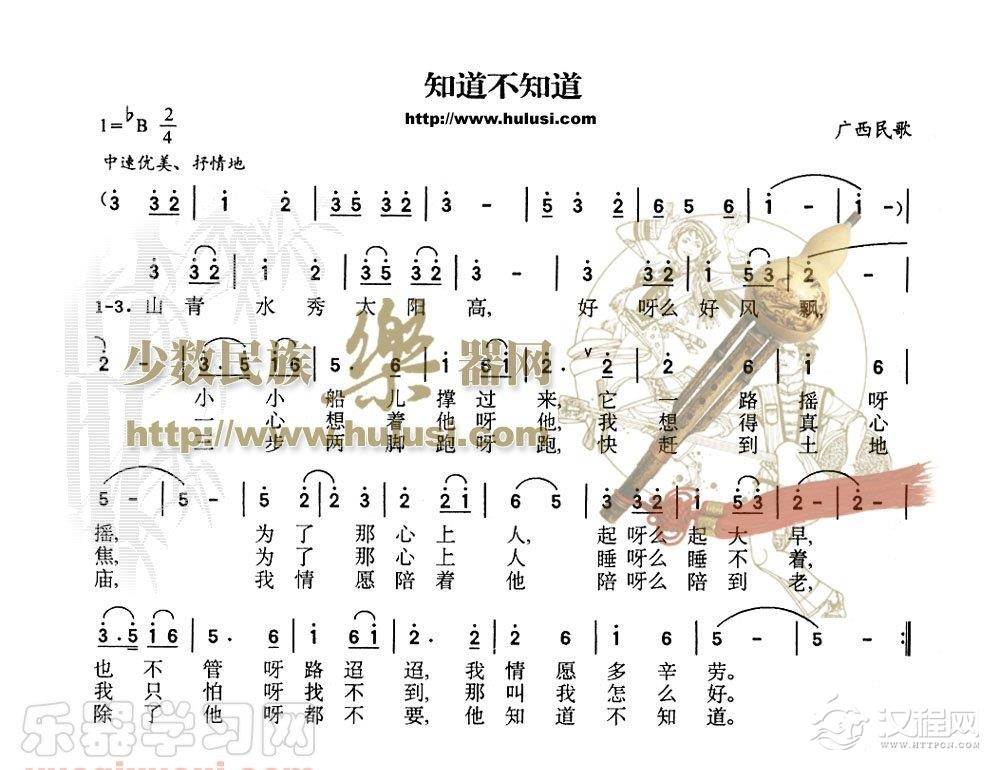 知道不知道
http://www.hulusi.com
1=♭B 2/4
广西民歌
中速优美、抒情地
(3 32 | 1 2 | 35 32 | 3 - | 5 3 2 | 6 5 6 | 1 - | 1 -) |
3 32 | 1 2 | 35 32 | 3 - | 3 32 | 1 53 | 2 -
1-3. 山青 水秀 太阳 高, 好 呀么 好风 飘,
2 - | 3.5 16 | 5. 6 | 1 61 | 2. 2 | 2 6 | 1 6
小 小 船 儿 撑 过 来, 它 一 路 摇 呀
一 心 想 着 他 呀 他, 我 想 得 真 心
三 步 两 脚 跑 呀 跑, 快 赶 到 土 地
少数民族樂器网
http://www.hulusi.com
5 - | 5 - | 5 2 | 2 3 | 2 21 | 6 5 | 3 32 | 1 53 | 2 - | 2 - |
摇, 为 了 那 心 上 人, 起 呀么 起 大 早,
焦, 为 了 那 心 上 人 睡 呀么 睡 不 着,
庙, 我 情 愿 陪 着 他 陪 呀么 陪 到 老,
3.5 16 | 5. 6 | 1 61 | 2. 2 | 2 6 | 1 6 | 5 - | 5 - :||
也 不 管 呀 路 迢 迢, 我 情 愿 多 辛 劳。
我 只 怕 呀 找 不 到, 那 叫 我 怎 么 好。
除 了 他 呀 都 不 要, 他 知 道 不 知 道。
乐器学习网
汉程网
WWW.HTTPCN.COM